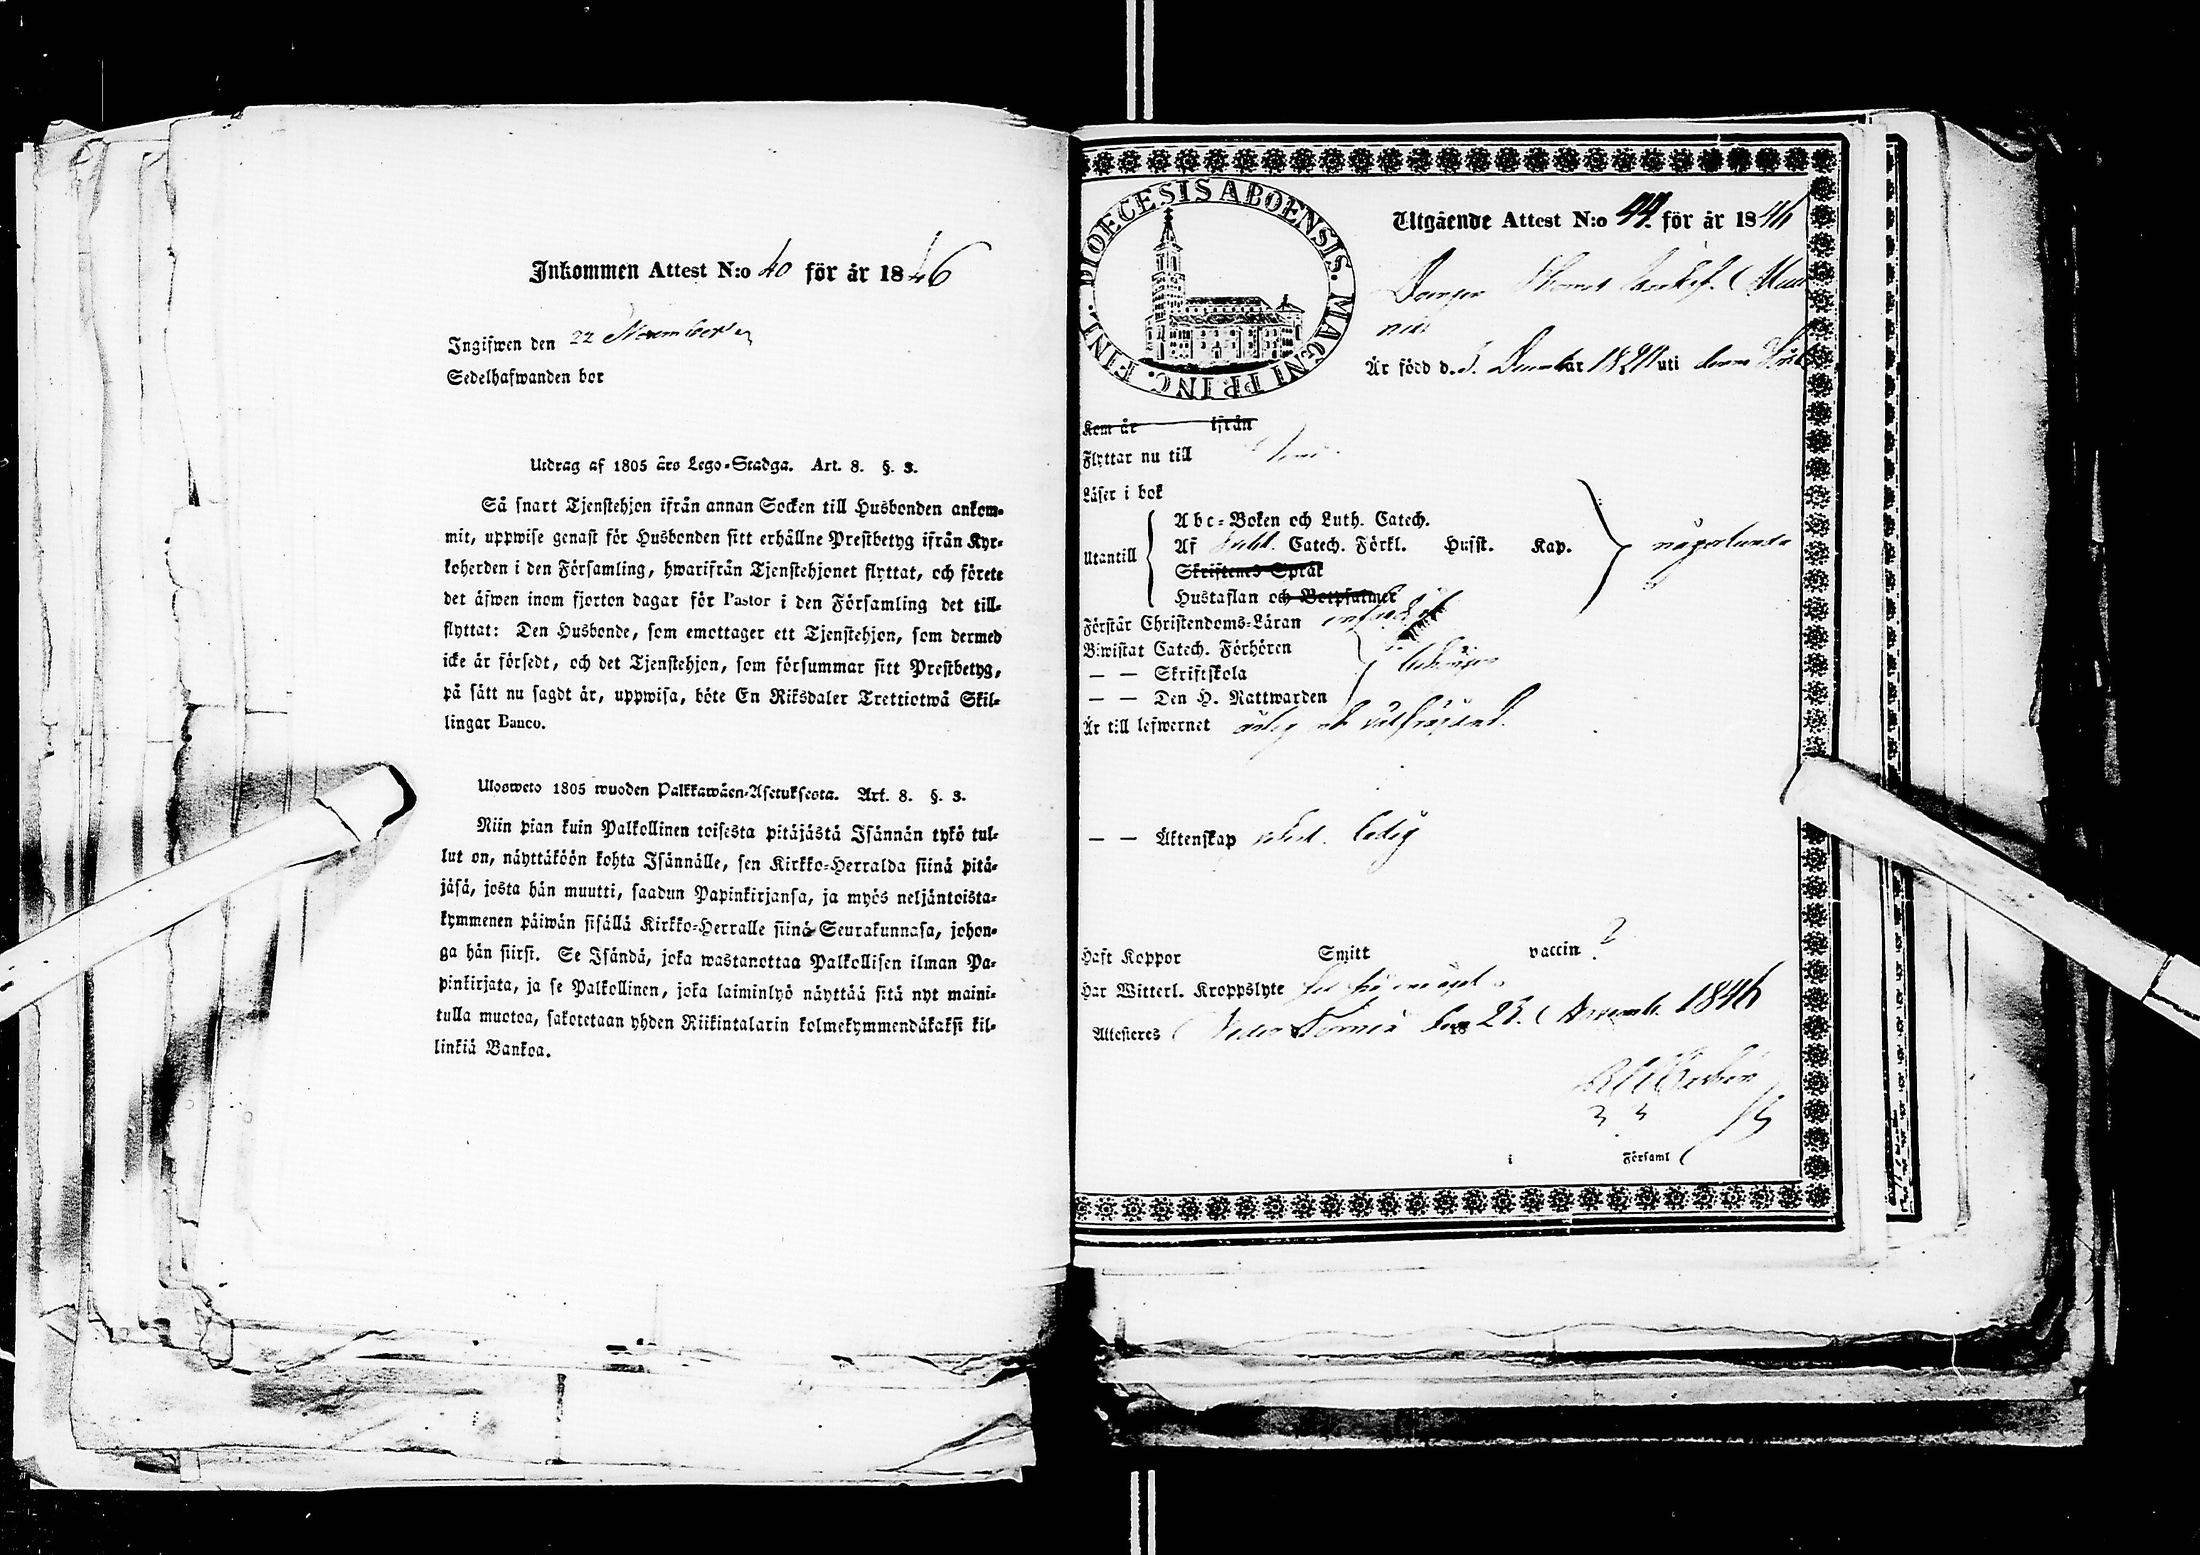 Inkommen Attest N:o 40 för år 1846
Ingifwen den 22 November
Sedelhafwanden bor
Utdrag af 1805 års Lego-Stadga. Art. 8. §. 3.
Så snart Tjenstehjon ifrån annan Socken till Husbonden ankom-
mit, uppwise genast för Husbonden sitt erhållne Prestbetyg ifrån Kyr-
koherden i den Församling, hwarifrån Tjenstehjonet flyttat, och förete
det äfwen inom fjorton dagar för Pastor i den Församling det till-
flyttat: Den Husbonde, som emottager ett Tjenstehjon, som dermed
icke är försedt, och det Tjenstehjon, som försummar sitt Prestbetyg,
på sätt nu sagdt är, uppwisa, böte En Riksdaler Trettiotwå Skil-
lingar Banco.
Ulosweto 1805 wuoden Palkkawäen-Asetuksesta. Art. 8. §. 3.
Niin pian kuin Palkollinen toisesta pitäjästä Isännän tykö tul-
lut on, näyttäköön kohta Isännälle, sen Kirkko-Herralda siinä pitä-
jäsä, josta hän muutti, saadun Papinkirjansa, ja myös neljäntoista-
kymmenen päiwän sisällä Kirkko-Herralle siinä Seurakunnasa, johon-
ga hän siirst. Se Isändä, joka wastanottaa Palkollisen ilman Pa-
pinkirjata, ja se Palkollinen, joka laiminlyö näyttää sitä nyt maini-
tulla muotoa, sakotetaan yhden Riikintalarin kolmekymmendäkaksi kil-
linkiä Bankoa.
DIOECESIS ABOENSIS. MAGNI PRINC. FINL.
Utgående Attest N:o 44. för år 1846
Drengen Thomas
Är född d. December uti denna
Kom år ifrån
Flyttar nu till
Läser i bok
Utantill
Abc-Boken och Luth. Catech.
Af Catech. Förkl. Husst. Kap. någorlunda
Skriftenes Språk
Hustaflan och Botpsalmer
Förstår Christendoms-Läran
Biwistat Catech. Förhören
— — Skriftskola
— — Den H. Nattwarden
Är till lefwernet ärlig och
— — Äktenskap ledig
Haft Koppor Smitt vaccin ?
Har Witterl. Kroppslyte
Attesteres Neder Torneå den 18 23. 1846
i Församl